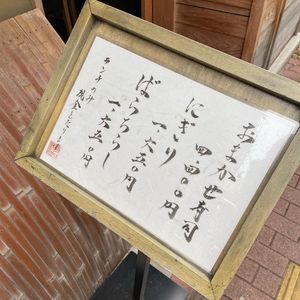 おまかせ寿司
四四〇〇円
にぎり
一六五〇円
ばらちらし
一六五〇円
ランチのみ